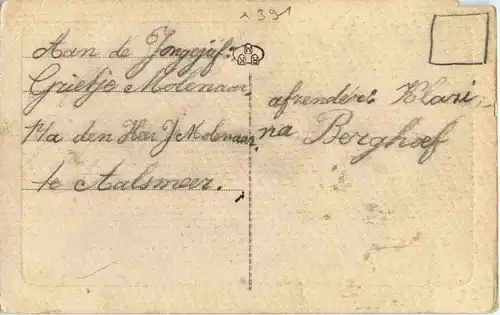 1391
Aan de Jongejuf:
Grietje Molenaar,
p/a den Heer J Molenaar.
te Aalsmeer.
afzender: Klasi-
na Berghoef